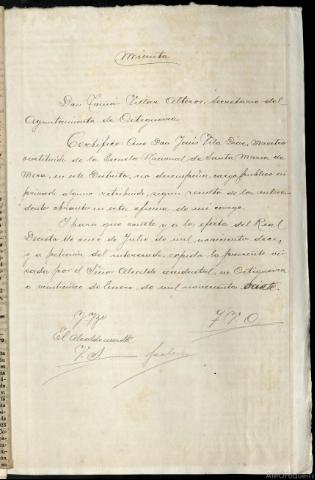 Minuta
Don Tomás Villar Alteros, Secretario del
Ayuntamiento de Ortigueira
Certifico: Que Don Jesús Vila Díaz, Maestro
sustituido de la Escuela Nacional de Santa María de
Mera, en este Distrito, no desempeña cargo publico ni
privado alguno retribuido, segun resulta de los antece-
dentes obrante en esta oficina de mi cargo.
Y para que conste y a los efectos del Real
Decreto de once de Julio de mil novecientos doce,
y a petición del interesado, expido la presente vi-
sada por el Señor Alcalde accidental, en Ortigueira
a veinticinco de Enero de mil novecientos
El Alcalde accidtl
AMOrtigueira